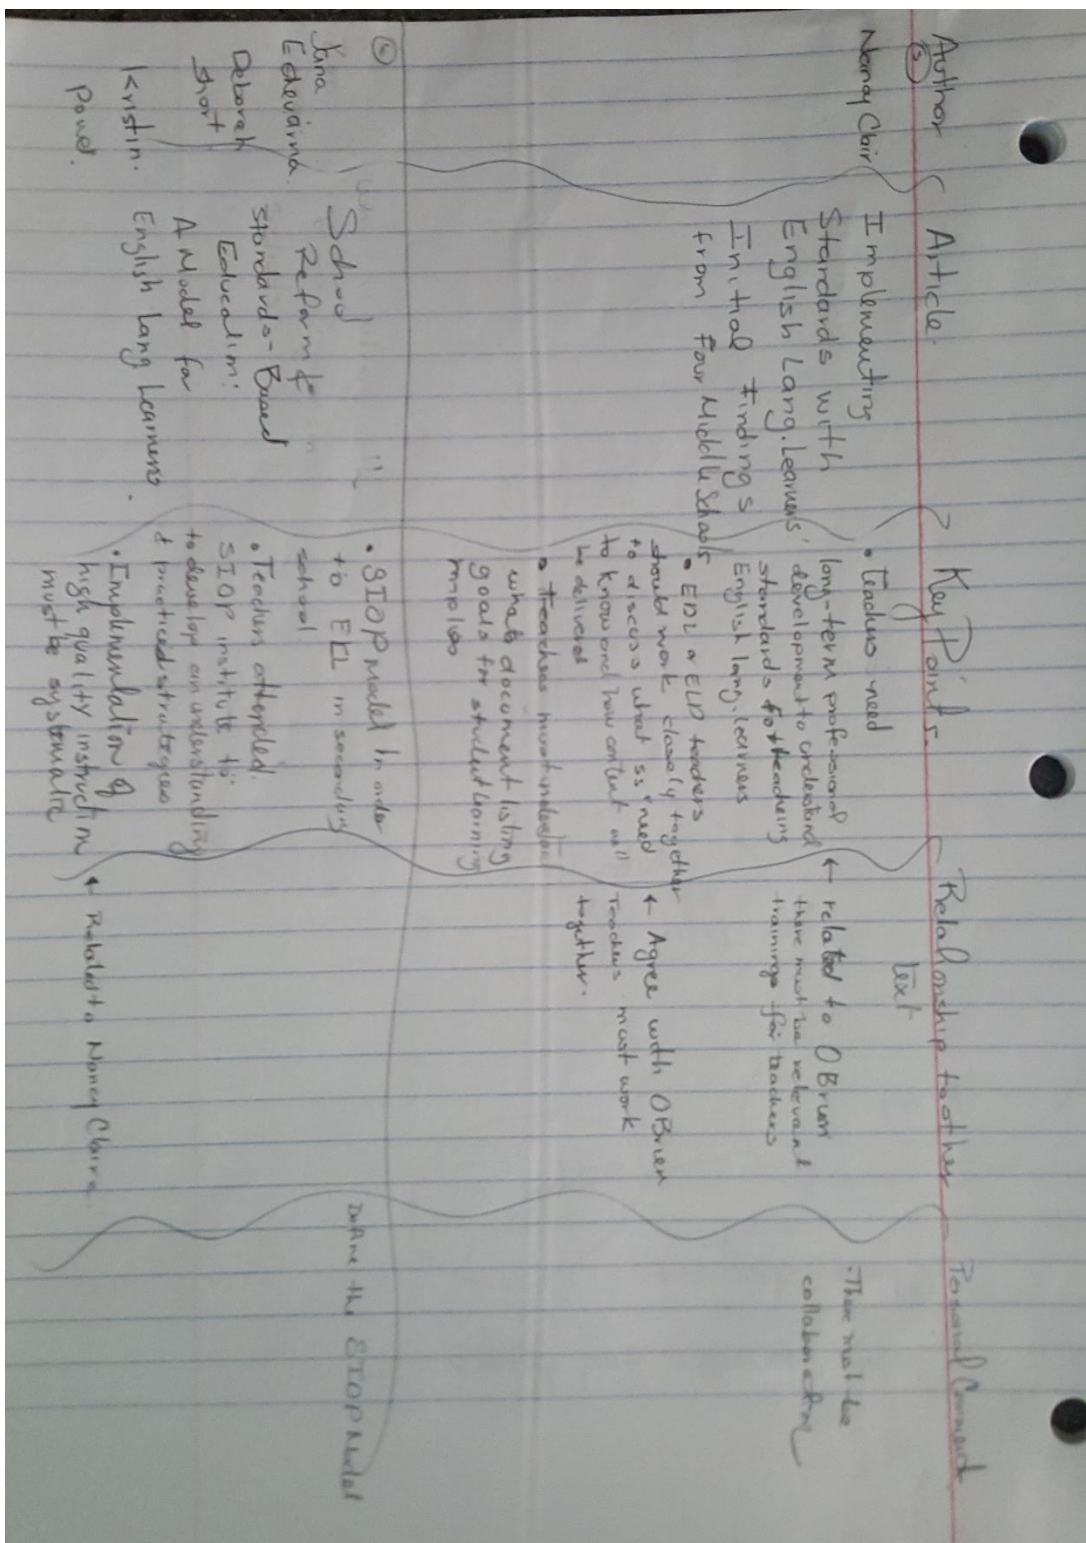 Author
Article
Key Points
Relationship to other
text
Personal Comment
(5)
Nancy Clair
Implementing
Standards with
English Lang. Learners
Initial findings
from Four Middle Schools
• teachers need
long-term professional
development to understand
standards for teaching
English lang. learners
• EDL or ELD teachers
should work closely together
to discuss what ss need
to know and how content will
be delivered
• Teaches must understand
what document listing
goals for student learning
implies
← related to OBrien
there must be relevant
trainings for teachers
← Agree with OBrien
Teachers must work
together.
• There must be
collaboration
(6)
Jana
Edevarna
Deborah
Short
Kristin.
Powel.
School
Reform &
Standards-Based
Education:
A Model for
English Lang Learners.
• SIOP model in order
to ELL in secondary
school
• Teachers attended
SIOP institute to
to develop an understanding
& practiced strategies
• Implementation of
high quality instruction
must be systematic
← Related to Nancy Claire.
Define the SIOP Model